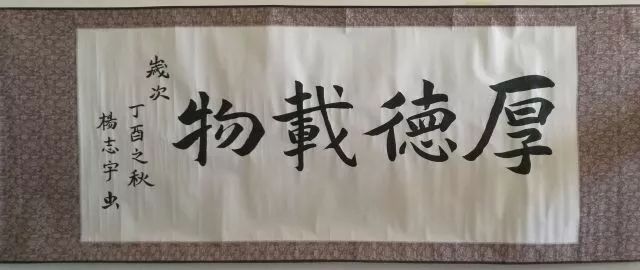 厚德載物
歲次
丁酉之秋
楊志宇